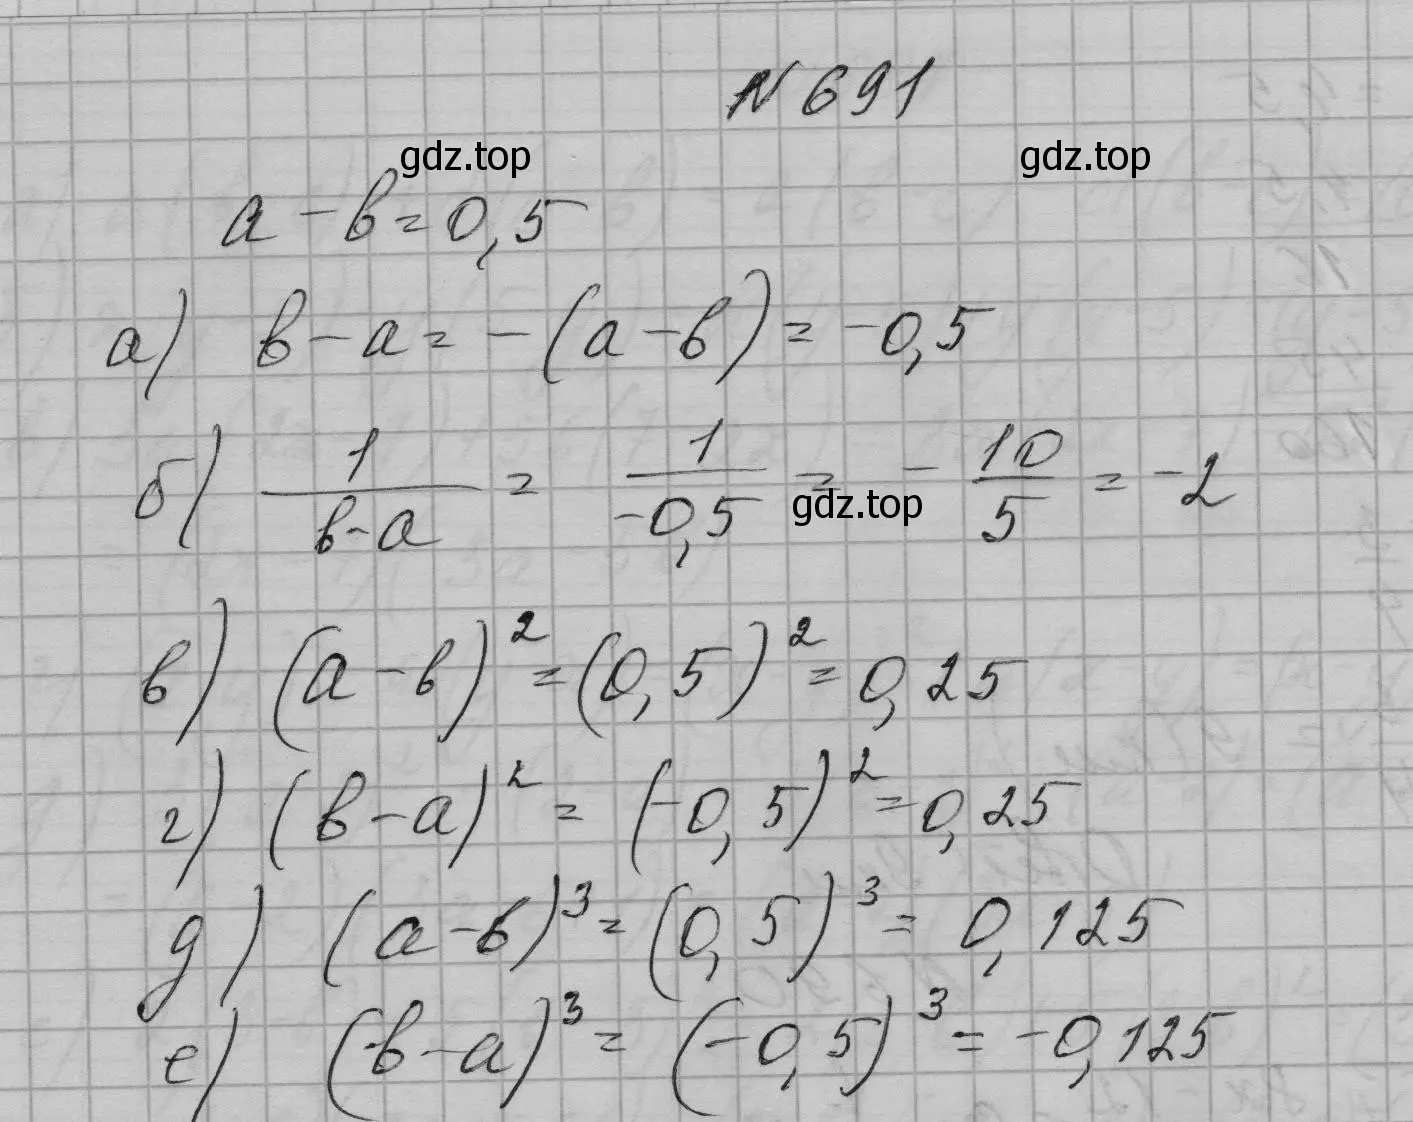 N 691
gdz.top gdz.top
a - в = 0,5
а) в - а = - (а - в) = -0,5
б) 1/(в-а) = 1/(-0,5) = - 10/5 = -2
gdz.top
в) (а - в)² = (0,5)² = 0,25
г) (в - а)² = (-0,5)² = 0,25
д) (а - в)³ = (0,5)³ = 0,125
е) (в - а)³ = (-0,5)³ = -0,125